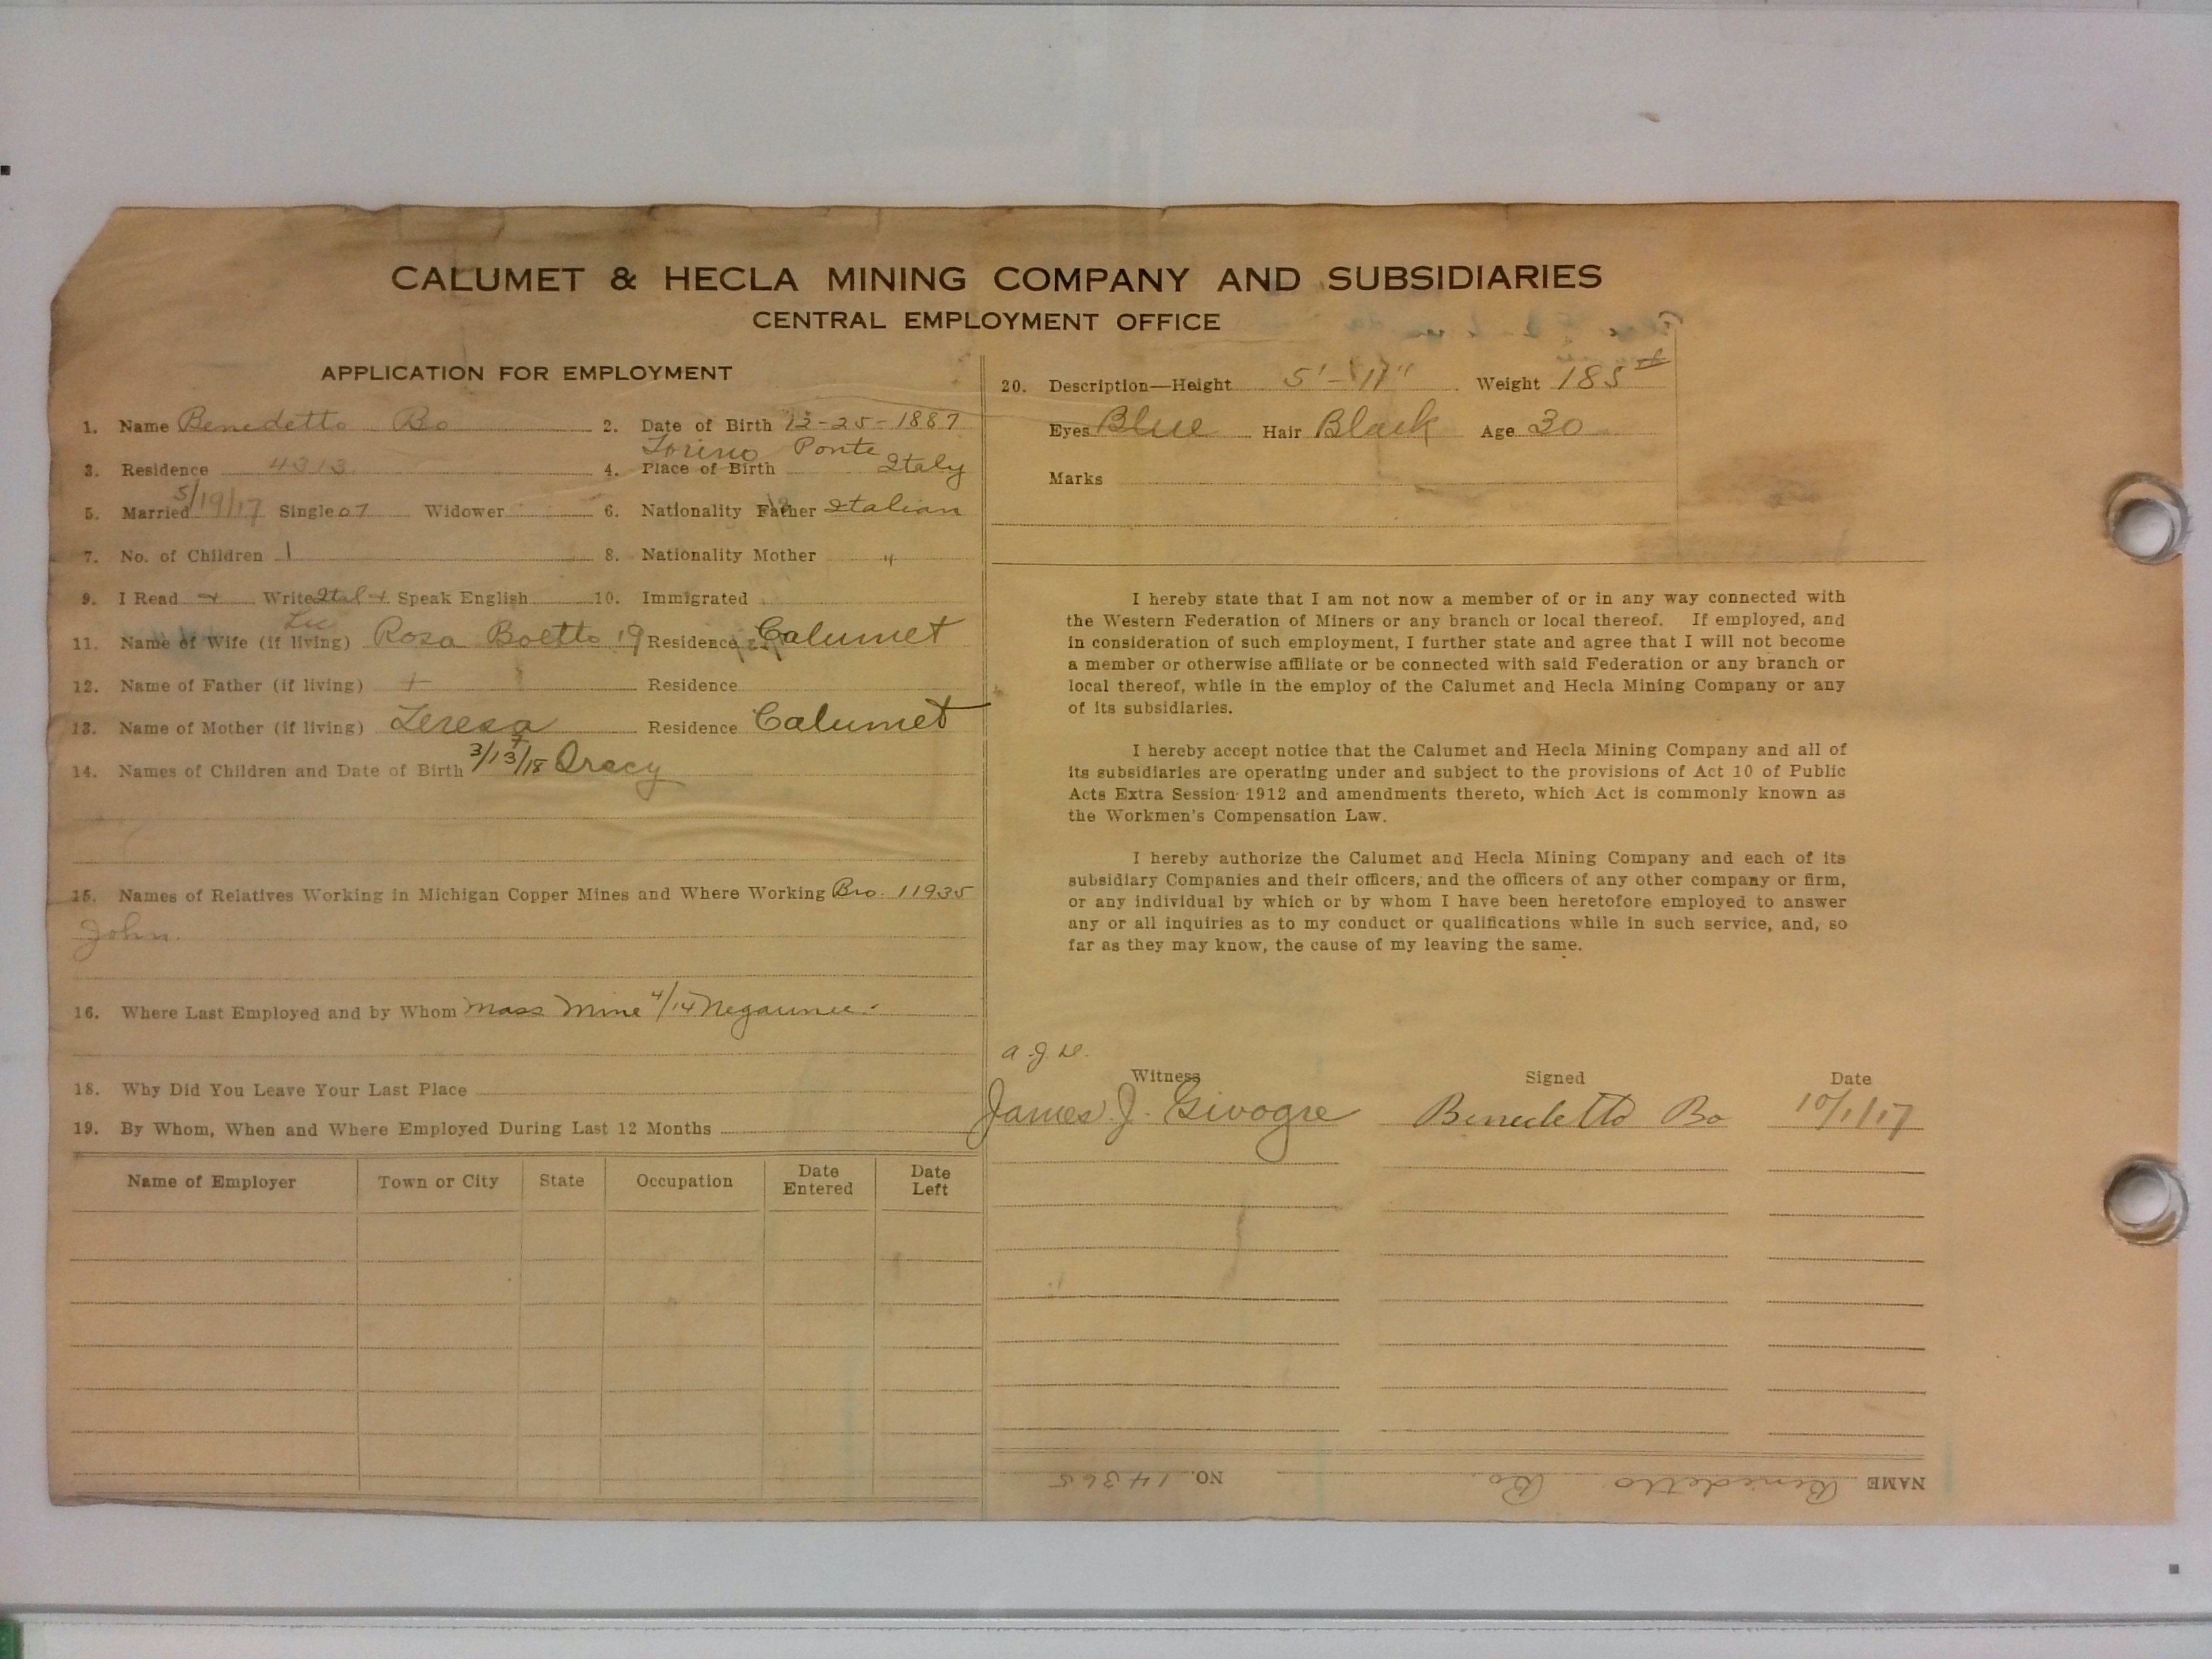 CALUMET & HECLA MINING COMPANY AND SUBSIDIARIES
CENTRAL EMPLOYMENT OFFICE
APPLICATION FOR EMPLOYMENT
1. Name Benedetto Bo 2. Date of Birth 12-25-1887
3. Residence 4313 4. Place of Birth Torino Ponte Italy
5. Married 5/19/17 Single Widower 6. Nationality Father Italian
7. No. of Children 1 8. Nationality Mother "
9. I Read + Write Ital + Speak English 10. Immigrated
11. Name of Wife (if living) Rosa Boetto 19 Residence Calumet
12. Name of Father (if living) + Residence
13. Name of Mother (if living) Teresa Residence Calumet
14. Names of Children and Date of Birth 3/13/18
15. Names of Relatives Working in Michigan Copper Mines and Where Working Bro. 11935
John.
16. Where Last Employed and by Whom Mass Mine 4/14 Negaunee
18. Why Did You Leave Your Last Place
19. By Whom, When and Where Employed During Last 12 Months
Name of Employer Town or City State Occupation Date Entered Date Left
20. Description—Height 5'-11" Weight 185 #
Eyes Blue Hair Black Age 30
Marks
I hereby state that I am not now a member of or in any way connected with
the Western Federation of Miners or any branch or local thereof. If employed, and
in consideration of such employment, I further state and agree that I will not become
a member or otherwise affiliate or be connected with said Federation or any branch or
local thereof, while in the employ of the Calumet and Hecla Mining Company or any
of its subsidiaries.
I hereby accept notice that the Calumet and Hecla Mining Company and all of
its subsidiaries are operating under and subject to the provisions of Act 10 of Public
Acts Extra Session 1912 and amendments thereto, which Act is commonly known as
the Workmen's Compensation Law.
I hereby authorize the Calumet and Hecla Mining Company and each of its
subsidiary Companies and their officers, and the officers of any other company or firm,
or any individual by which or by whom I have been heretofore employed to answer
any or all inquiries as to my conduct or qualifications while in such service, and, so
far as they may know, the cause of my leaving the same.
Witness Signed Date
James J. Givogre Benedetto Bo 10/1/17
NAME Benedetto Bo. NO. 14365